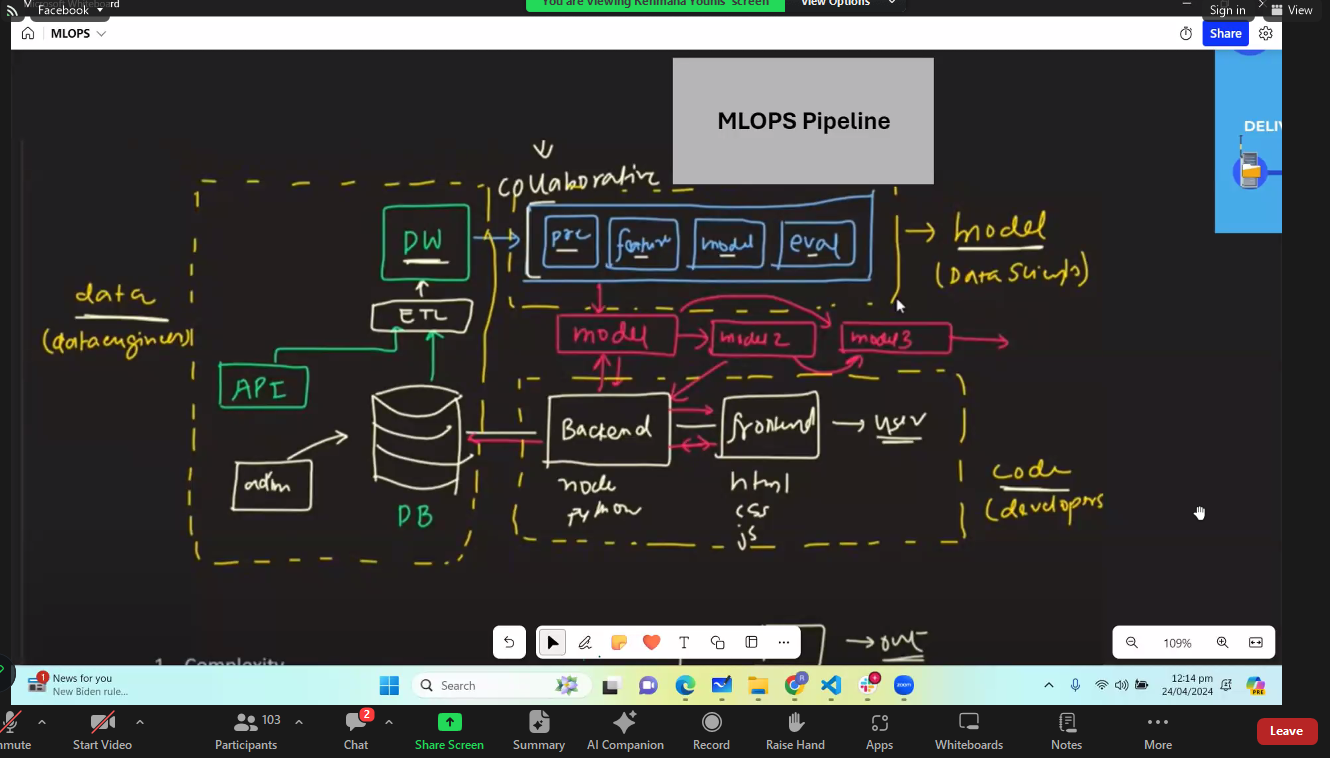 Microsoft Whiteboard
Facebook
You are viewing Rehmana Younis' screen
View Options
Sign in
View
MLOPS
Share
MLOPS Pipeline
DELI
collaborative
DW
pre
feature
model
eval
model
(Data Scientists)
data
(data engineers)
ETL
API
model
model 2
model 3
admin
DB
Backend
frontend
user
node
python
html
css
js
code
(developers
out
1. Complexity
109%
1
News for you
New Biden rule...
Search
zoom
12:14 pm
24/04/2024
PRE
mute
Start Video
103
Participants
2
Chat
Share Screen
Summary
AI Companion
Record
Raise Hand
Apps
Whiteboards
Notes
More
Leave